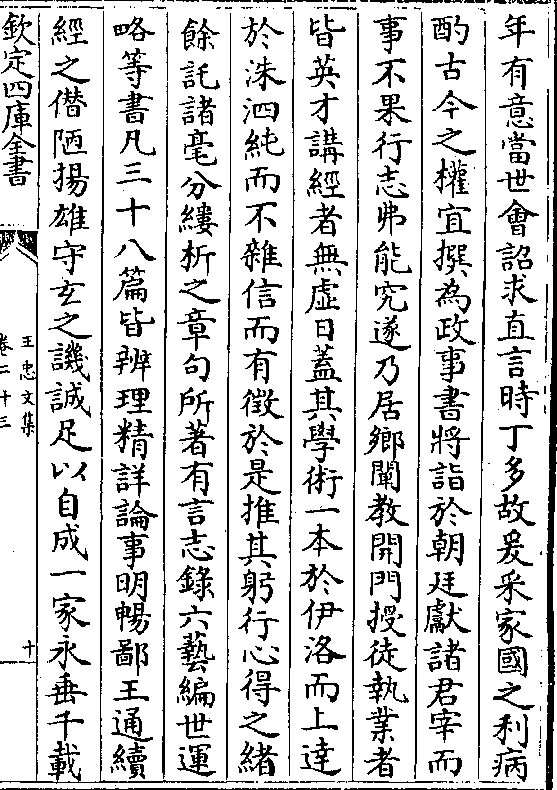 年有意當世會詔求直言時丁多故爰采家國之利病
酌古今之權宜撰為政事書將詣於朝廷獻諸君宰而
事不果行志弗能究遂乃居鄉闡教開門授徒執業者
皆英才講經者無虛日蓋其學術一本於伊洛而上達
於洙泗純而不雜信而有徵於是推其躬行心得之緒
餘託諸毫分縷析之章句所著有言志錄六藝編世運
略等書凡三十八篇皆辨理精詳論事明暢鄙王通續
經之僭陋揚雄守玄之譏誠足以自成一家永垂千載
欽定四庫全書
王忠文集
卷二十三
十